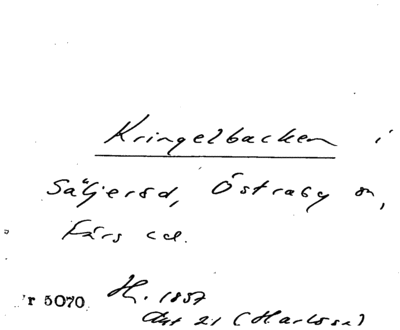 Kringelbacken i
Säljeröd, Östraby sn,
Färs hd.
r 5070 H. 1857
Akt 21 (Harlösa)